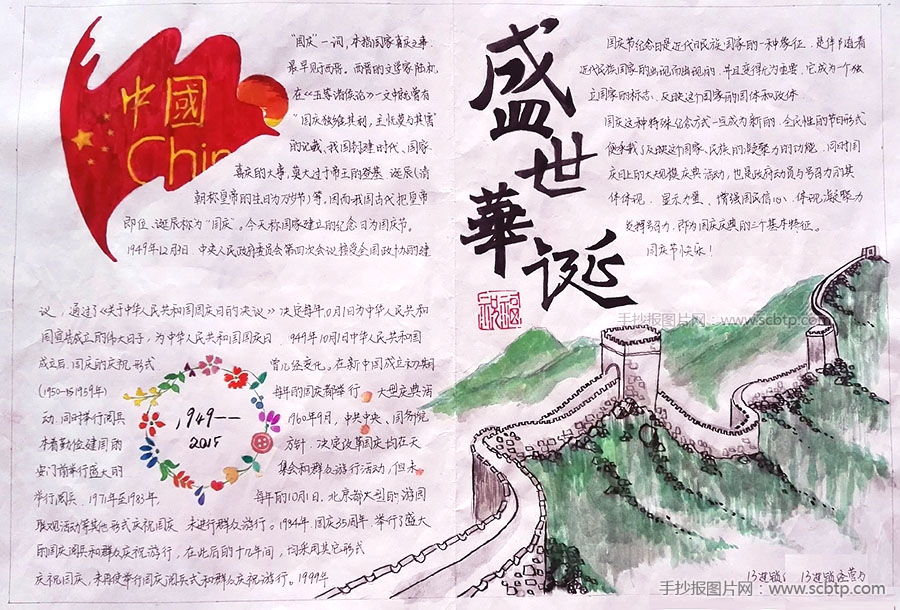 中國
China
"国庆"一词,本指国家喜庆之事,
最早见于西晋。西晋的文学家陆机
在《五等诸侯论》一文中就曾有
"国庆独飨其利,主忧莫与其害"
的记载,我国封建时代、国家
喜庆的大事,莫大过于帝王的登基、诞辰(清
朝称皇帝的生日为万岁节)等,因而我国古代把皇帝
即位、诞辰称为"国庆"。今天称国家建立的纪念日为国庆节。
1949年12月3日,中央人民政府委员会第四次会议接受全国政协的建
议,通过了《关于中华人民共和国国庆日的决议》决定每年10月1日为中华人民共和
国宣告成立的伟大日子,为中华人民共和国国庆日
949年10月1日中华人民共和国
成立后,国庆的庆祝形式
曾几经变化。在新中国成立初期
(1950-1959年)
每年的国庆都举行
大型庆典活
动,同时举行阅兵
1960年9月,中共中央、国务院
本着勤俭建国的
方针,决定改革国庆
集会和群众游行活动,但未
举行阅兵、1971年至1983年,
每年的10月1日,北京都大型的游园
联欢活动等其他形式庆祝国庆,未进行群众游行。1984年,国庆35周年,举行了盛大
的国庆阅兵和群众庆祝游行,在此后的十几年间,均采用其它形式
庆祝国庆,未再使举行国庆阅兵式和群众庆祝游行。1999年
1949——
2015
盛世華诞
国庆节纪念日是近代民族国家的一种象征,是伴随着
近代民族国家的出现而出现的,并且变得尤为重要,它成为一个独
立国家的标志,反映这个国家的国体和政体
国庆这种特殊纪念方式一旦成为新的、全民性的节日形式
便承载了反映这个国家、民族的凝聚力的功能,同时国
庆日上的大规模庆典活动,也是政府动员与号召力的具
体体现,显示力量、增强国民信心,体现凝聚力
发挥号召力,即为国庆庆典的三个基本特征。
国庆节快乐!
手抄报图片网:www.scbtp.com
手抄报图片网:www.scbtp.com